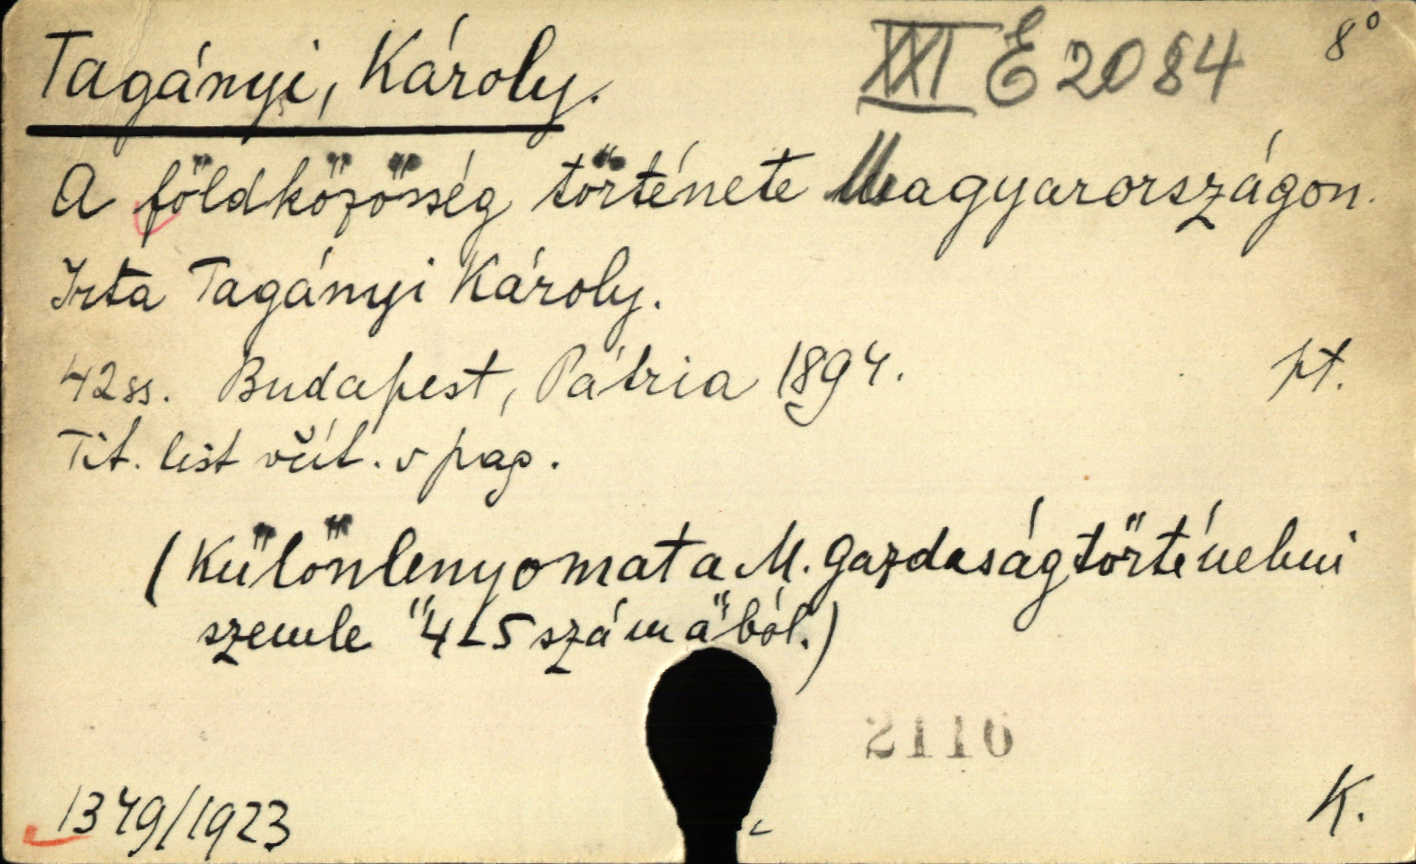 Tagányi, Károly.
XXI E 2084
8°
A földközösség története Magyarországon.
Irta Tagányi Károly.
42 ss. Budapest, Pátria 1894.
pt.
Tit. list včít. v pag.
(Különlenyomat a M. Gazdaságtörténelmi
szemle "4-5 számá"ból.)
2116
1349/1923
K.